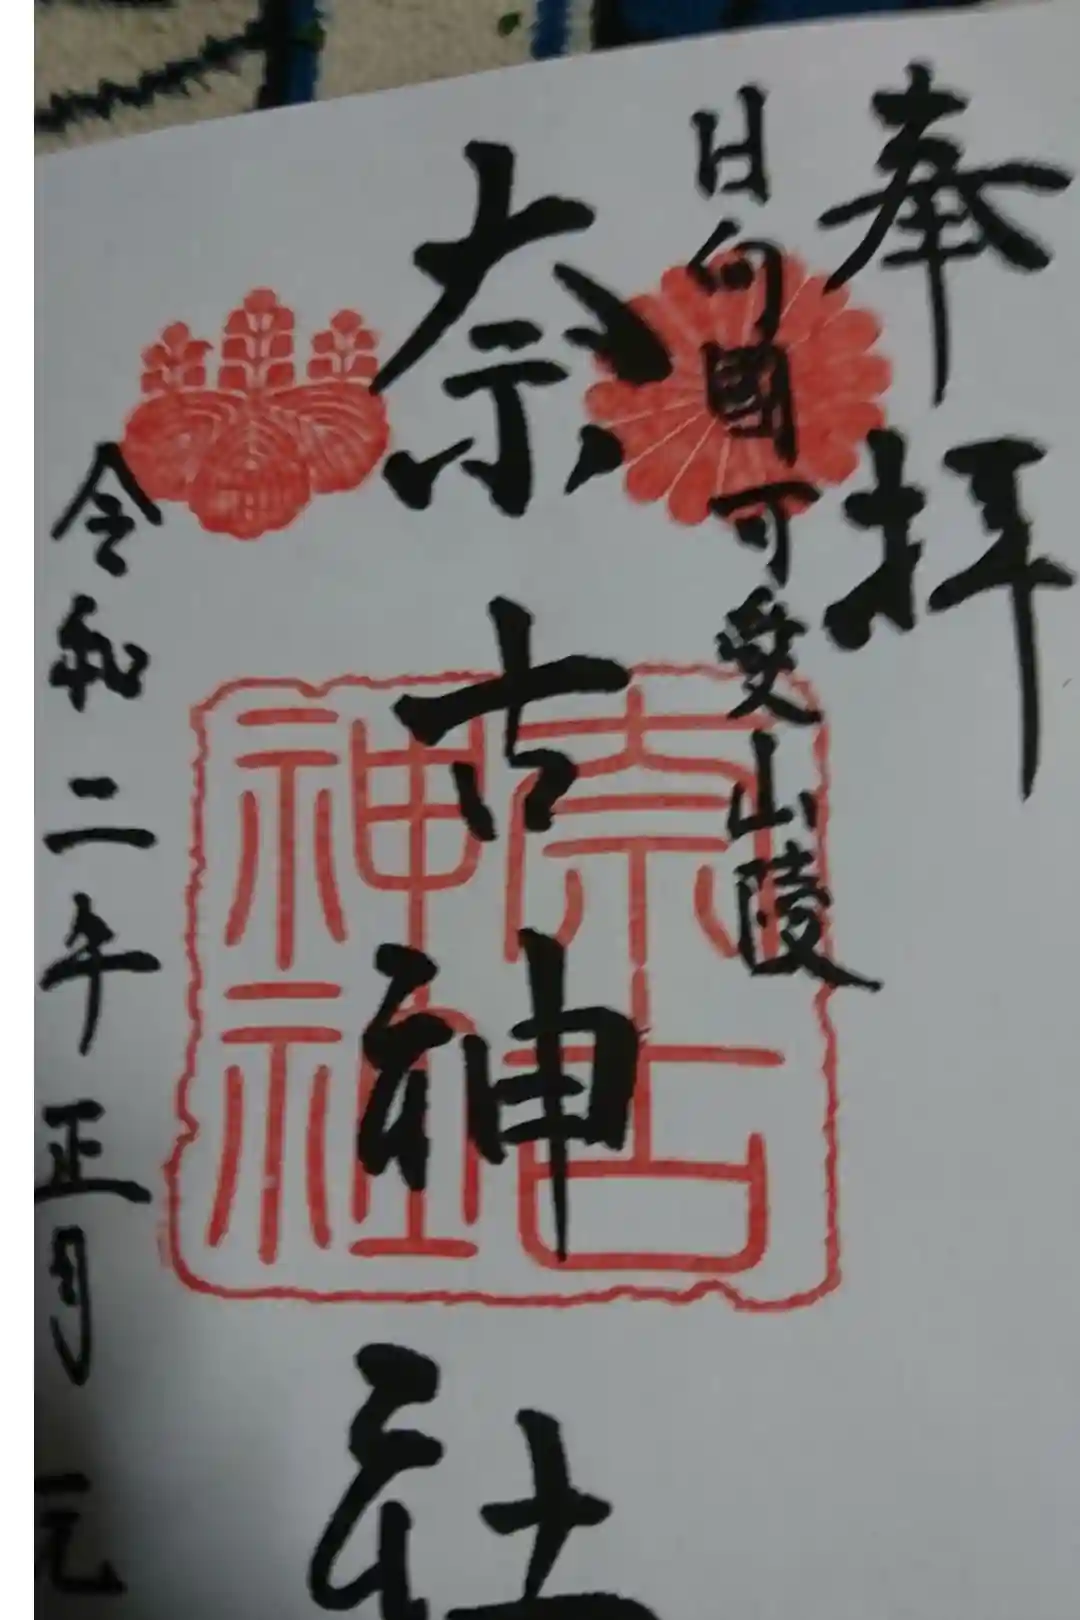 奉拝
日向國可愛山陵
奈古神社
奈古神社
令和二年正月元